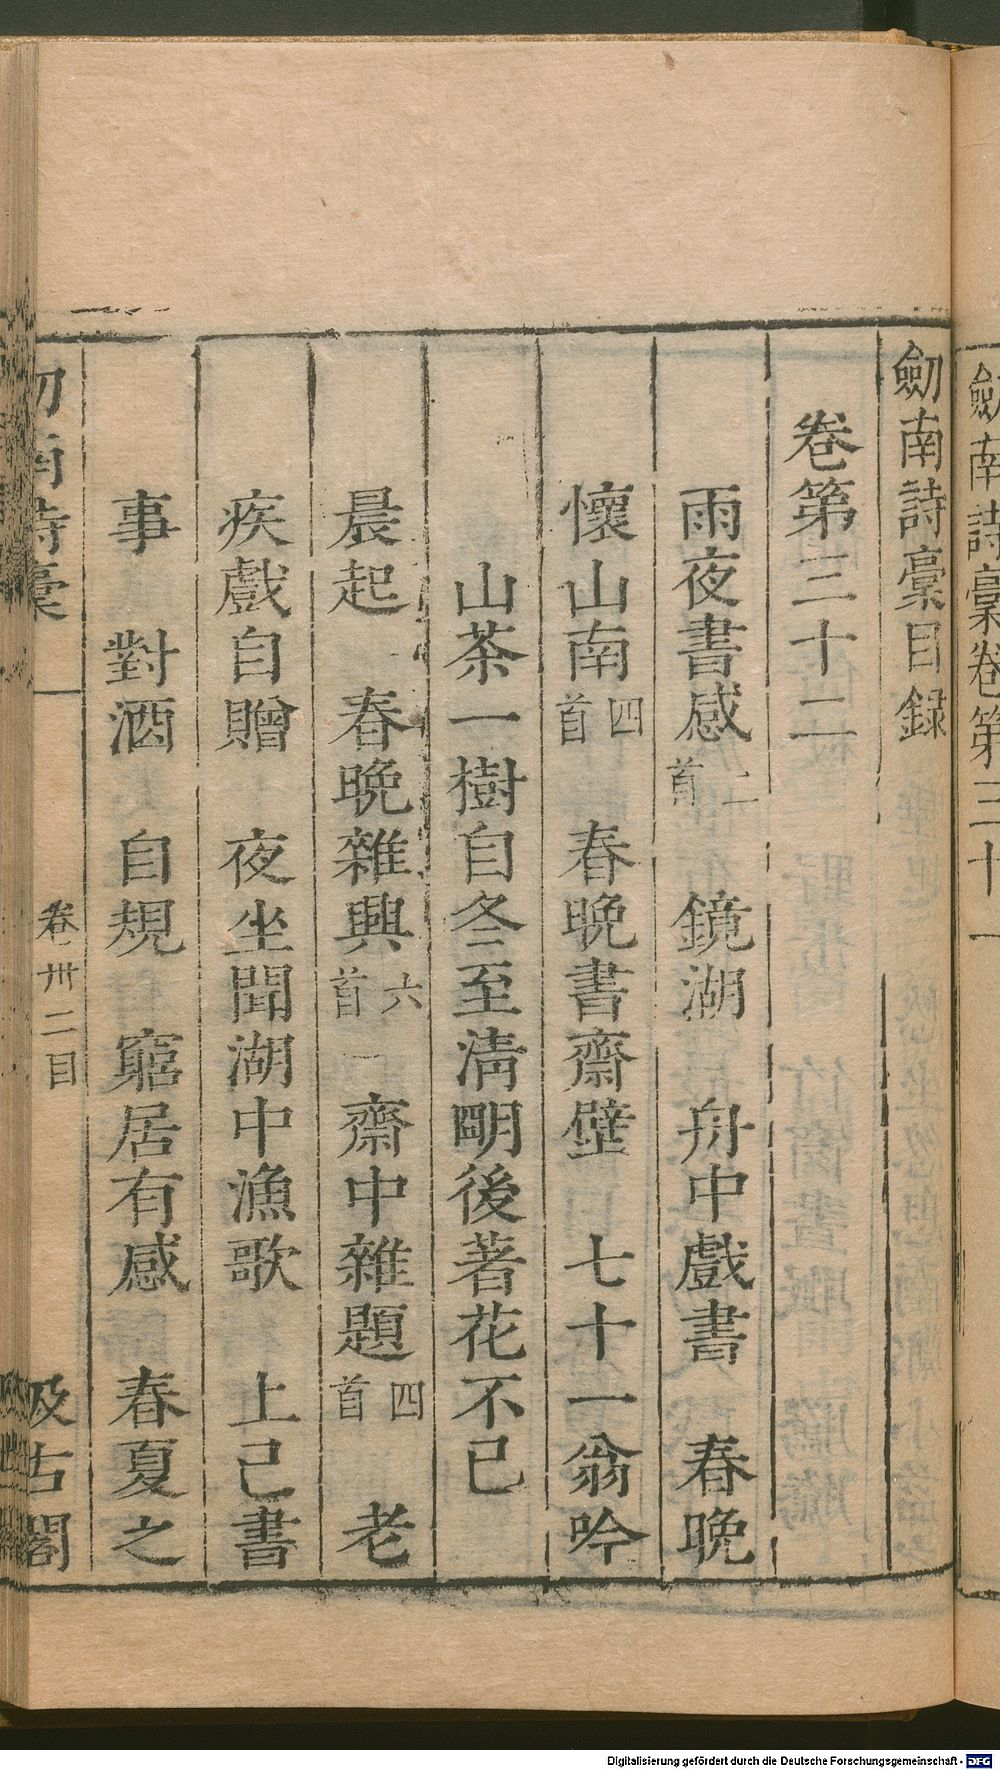 劒南詩藁卷第三十一
劒南詩藁目録
卷第三十二
雨夜書感二首　鏡湖　舟中戲書　春晚
懷山南四首　春晚書齋壁　七十一翁吟
山茶一樹自冬至淸明後著花不已
晨起　春晚雜興六首　齋中雜題四首　老
疾戲自贈　夜坐聞湖中漁歌　上己書
事　對酒　自規　窮居有感　春夏之
劒南詩藁　卷卅二目　汲古閣
Digitalisierung gefördert durch die Deutsche Forschungsgemeinschaft - DFG